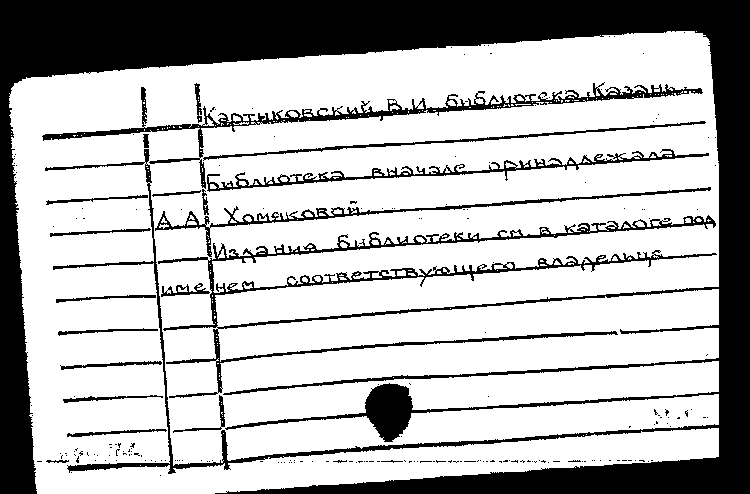 Картиковский, В.И., библиотека, Казань.
Библиотека вначале принадлежала
А.А. Хомяковой.
Издания библиотеки см. в каталоге под
именем соответствующего владельца